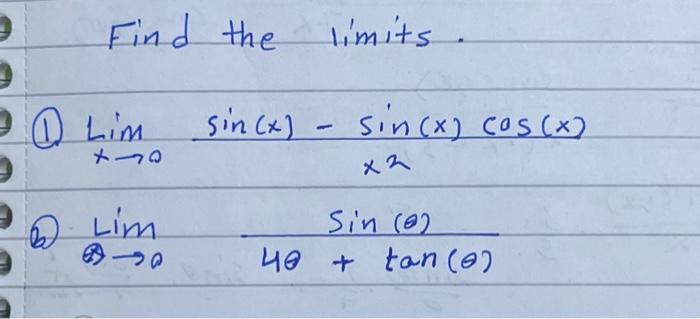 Find the limits.
① Lim x→0 (sin(x) - sin(x) cos(x)) / x2
② Lim θ→0 sin(θ) / (4θ + tan(θ))